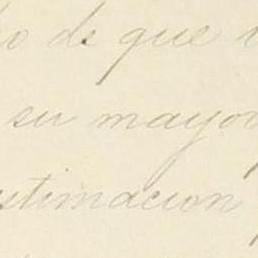 do de que
su mayor
stimacion